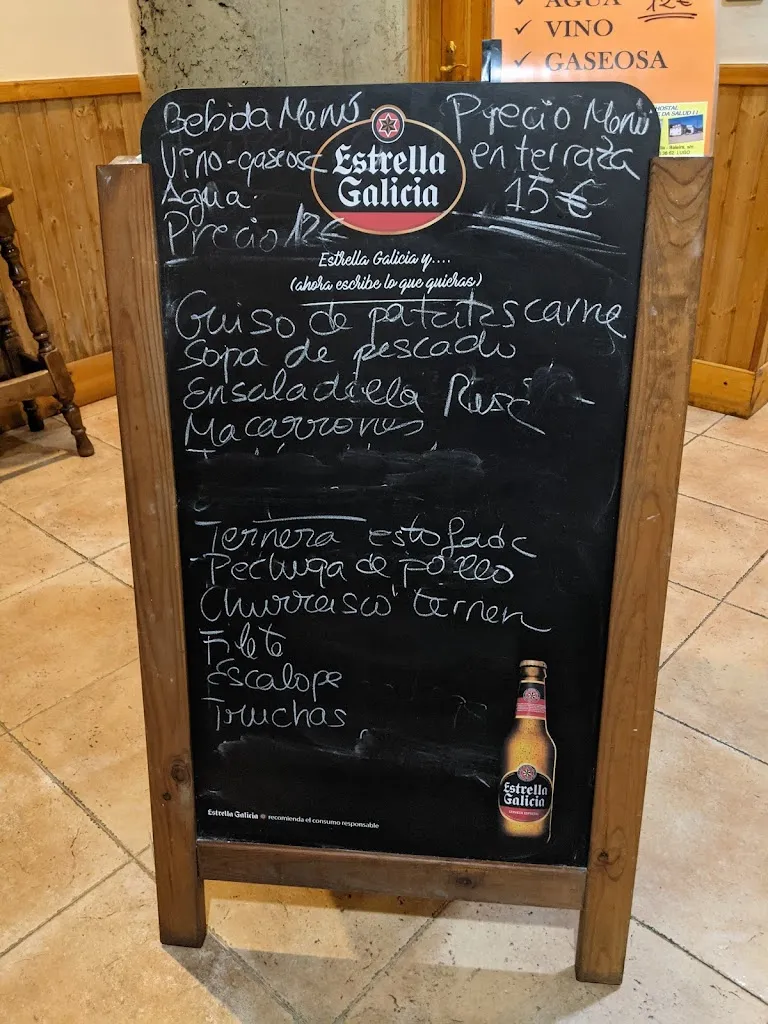 AGUA 12€
✓ VINO
✓ GASEOSA
HOSTAL
Bebida Menú
Vino-gaseosa
Agua.
Precio 12€
Precio Menú
en terraza
15€
Estrella
Galicia
Estrella Galicia y....
(ahora escribe lo que quieras)
Guiso de patatas carne
Sopa de pescado
Ensaladilla Rusa
Macarrones
Ternera estofada
Pechuga de pollo
Churrasco ternera
Filete
Escalope
Truchas
Estrella
Galicia
Estrella Galicia recomienda el consumo responsable